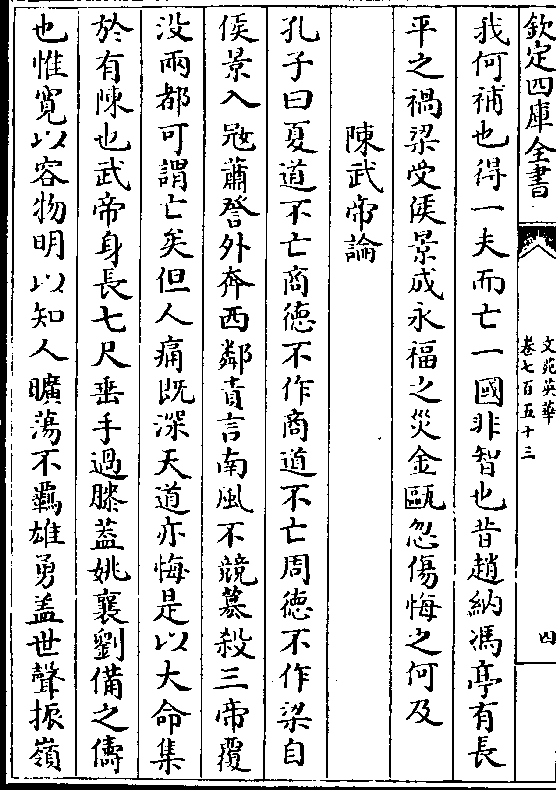 欽定四庫全書
文苑英華
卷七百五十三
四
我何補也得一夫而亡一國非智也昔趙納馮亭有長
平之禍梁受侯景成永福之災金甌忽傷悔之何及
陳武帝論
孔子曰夏道不亡商德不作商道不亡周德不作梁自
侯景入宼蕭詧外奔西鄰責言南風不競簒殺三帝覆
没兩都可謂亡矣但人痛既深天道亦悔是以大命集
於有陳也武帝身長七尺垂手過膝蓋姚襄劉備之儔
也惟寛以容物明以知人曠蕩不羈雄勇盖世聲振嶺